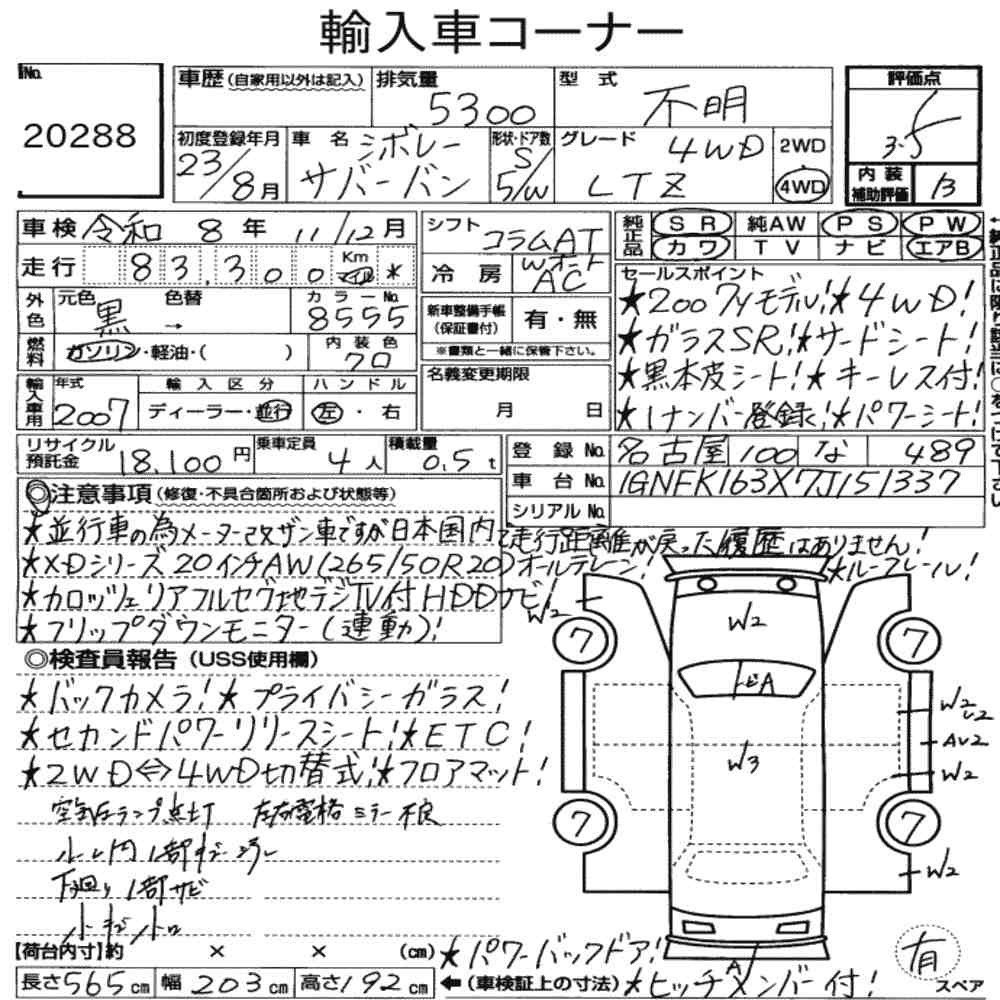 輸入車コーナー
No.
20288
車歴 (自家用以外は記入)
排気量
5300
型式
不明
評価点
3.5
初度登録年月
23/8月
車名
シボレー
サバーバン
形状・ドア数
S
5/W
グレード
4WD
LTZ
2WD
4WD
内装
補助評価
B
車検 令和 8年 11/12月
シフト
コラムAT
純正品
SR 純AW PS PW
カワ TV ナビ エアB
走行 83,300 Km マイル *
冷房
Wオート
AC
セールスポイント
★2007yモデル!★4WD!
★ガラスSR!★サードシート!
★黒本皮シート!★キーレス付!
★1ナンバー登録!★パワーシート!
外色
元色
黒
色替
→
カラーNo.
8555
新車整備手帳
(保証書付)
有・無
※書類と一緒に保管下さい。
燃料
ガソリン・軽油・( )
内装色
クロ
輸入車用
年式
2007
輸入区分
ディーラー・並行
ハンドル
左・右
名義変更期限
月 日
リサイクル
預託金
18,100円
乗車定員
4人
積載量
0.5t
登録No.
名古屋 100 な 489
車台No.
1GNFK163X7J151337
シリアルNo.
◎注意事項 (修復・不具合箇所および状態等)
★並行車の為メーター改ザン車ですが日本国内で走行距離が戻った履歴はありません!
★XDシリーズ20インチAW(265/50R20)オールテレーン!
★ルーフレール!
★カロッツェリアフルセグ地デジTV付HDDナビ!
★フリップダウンモニター(連動)!
◎検査員報告 (USS使用欄)
★バックカメラ!★プライバシーガラス!
★セカンドパワーリリースシート!★ETC!
★2WD⇔4WD切替式!★フロアマット!
空気圧ランプ点灯 左右電格ミラー不良
下廻り1部サビ
W2
7
7
W2
トビA
W2
AU2
W2
W3
7
7
W2
A
【荷台内寸】約 × × (cm)
★パワーバックドア!
長さ565cm 幅203cm 高さ192cm
← (車検証上の寸法) ★ヒッチメンバー付!
有
スペア